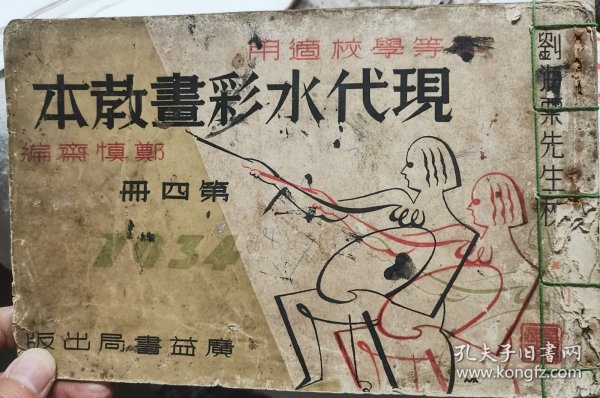 劉海粟先生校
等學校適用
現代水彩畫教本
鄭慎齋編
第四冊
1934
廣益書局出版
孔夫子旧书网
www.kongfz.com